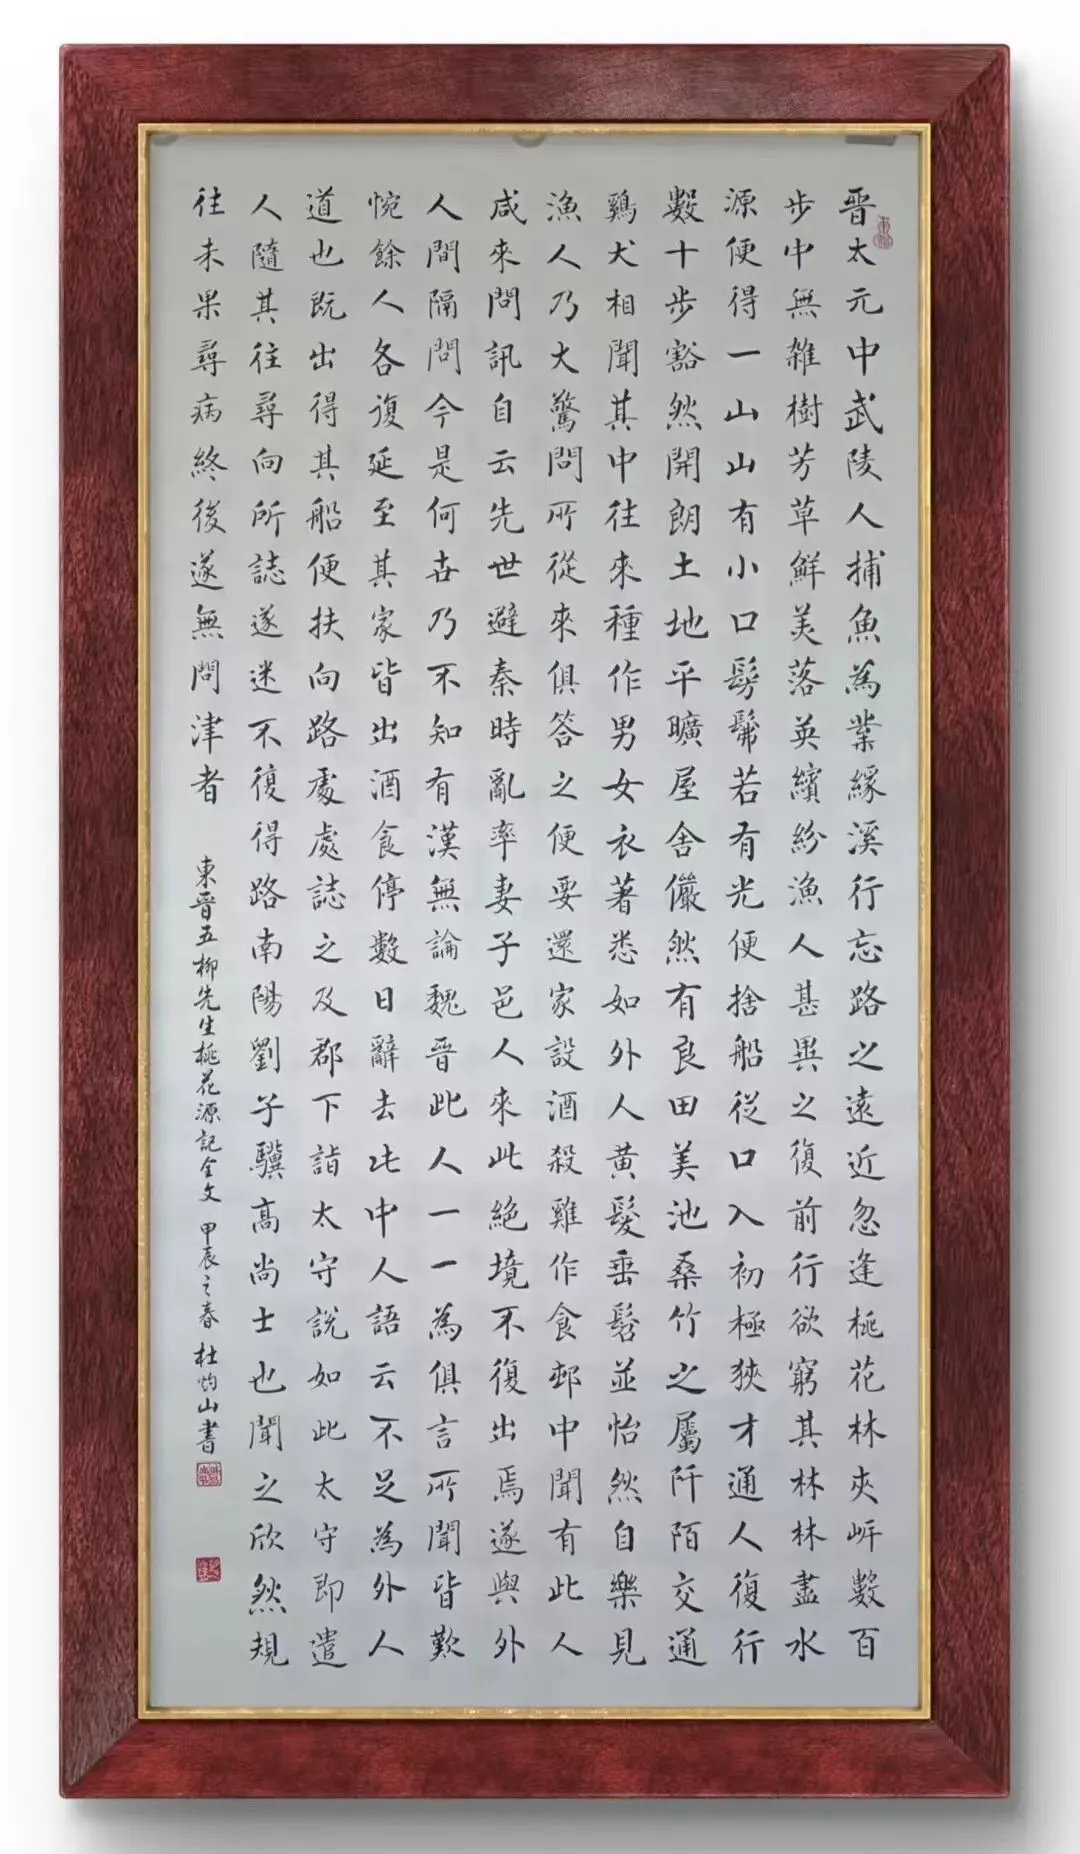 晉太元中武陵人捕魚為業緣溪行忘路之遠近忽逢桃花林夾岸數百
步中無雜樹芳草鮮美落英繽紛漁人甚異之復前行欲窮其林林盡水
源便得一山山有小口髣髴若有光便捨船從口入初極狹才通人復行
數十步豁然開朗土地平曠屋舍儼然有良田美池桑竹之屬阡陌交通
鷄犬相聞其中往來種作男女衣著悉如外人黃髮垂髫並怡然自樂見
漁人乃大驚問所從來俱答之便要還家設酒殺雞作食邨中聞有此人
咸來問訊自云先世避秦時亂率妻子邑人來此絕境不復出焉遂與外
人間隔問今是何世乃不知有漢無論魏晉此人一一為俱言所聞皆歎
惋餘人各復延至其家皆出酒食停數日辭去此中人語云不足為外人
道也既出得其船便扶向路處處誌之及郡下詣太守說如此太守即遣
人隨其往尋向所誌遂迷不復得路南陽劉子驥高尚士也聞之欣然規
往未果尋病終後遂無問津者 東晉五柳先生桃花源記全文 甲辰之春 杜灼山書